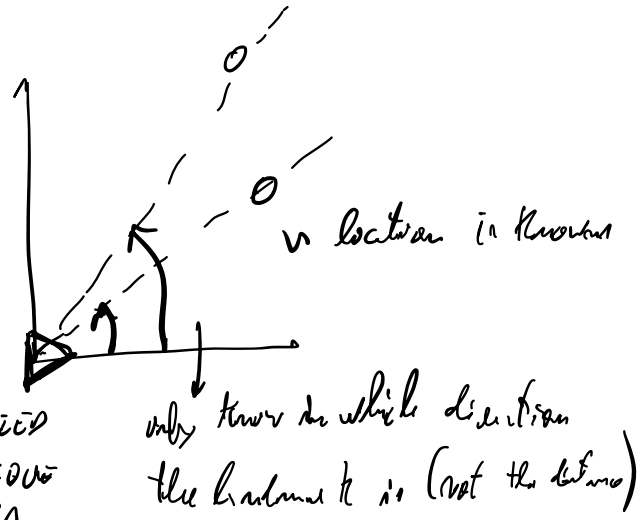 location is known
only know in which direction
the landmark is (not the distance)